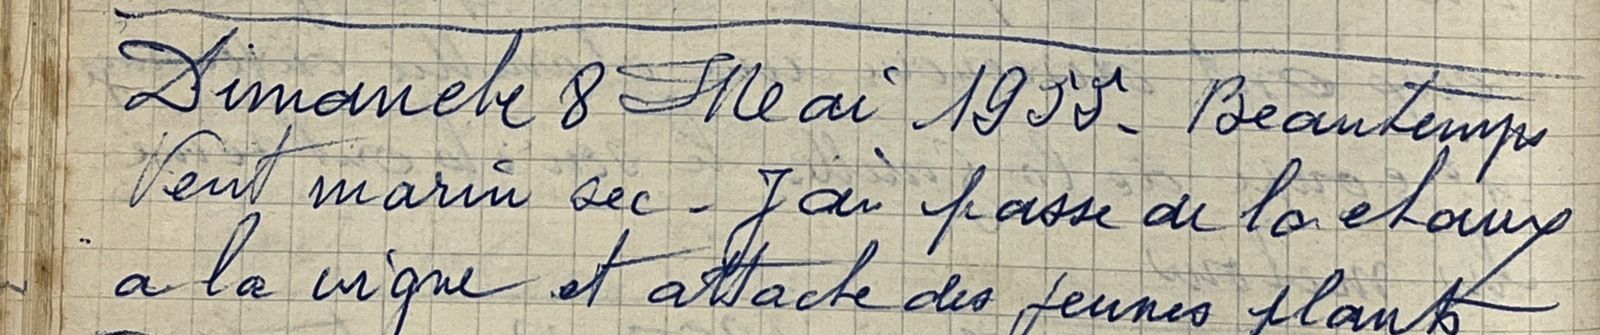 Dimanche 8 Mai 1955. Beau temps
Vent marin sec. J ai passe de la chaux
a la vigne et attache des jeunes plants